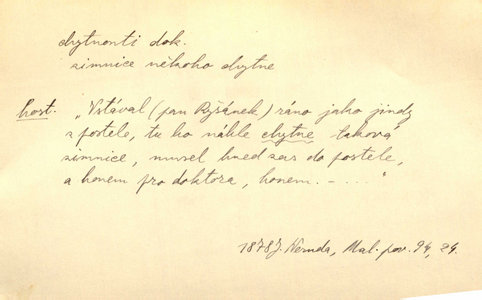 chytnouti dok.
zimnice někoho chytne
host. „Vstával (pan Ryšánek) ráno jako jindy
z postele, tu ho náhle chytne taková
zimnice, musel hned zas do postele,
a honem pro doktora, honem. - ... . "
1878 J. Neruda, Mal. pov. 94, 24.